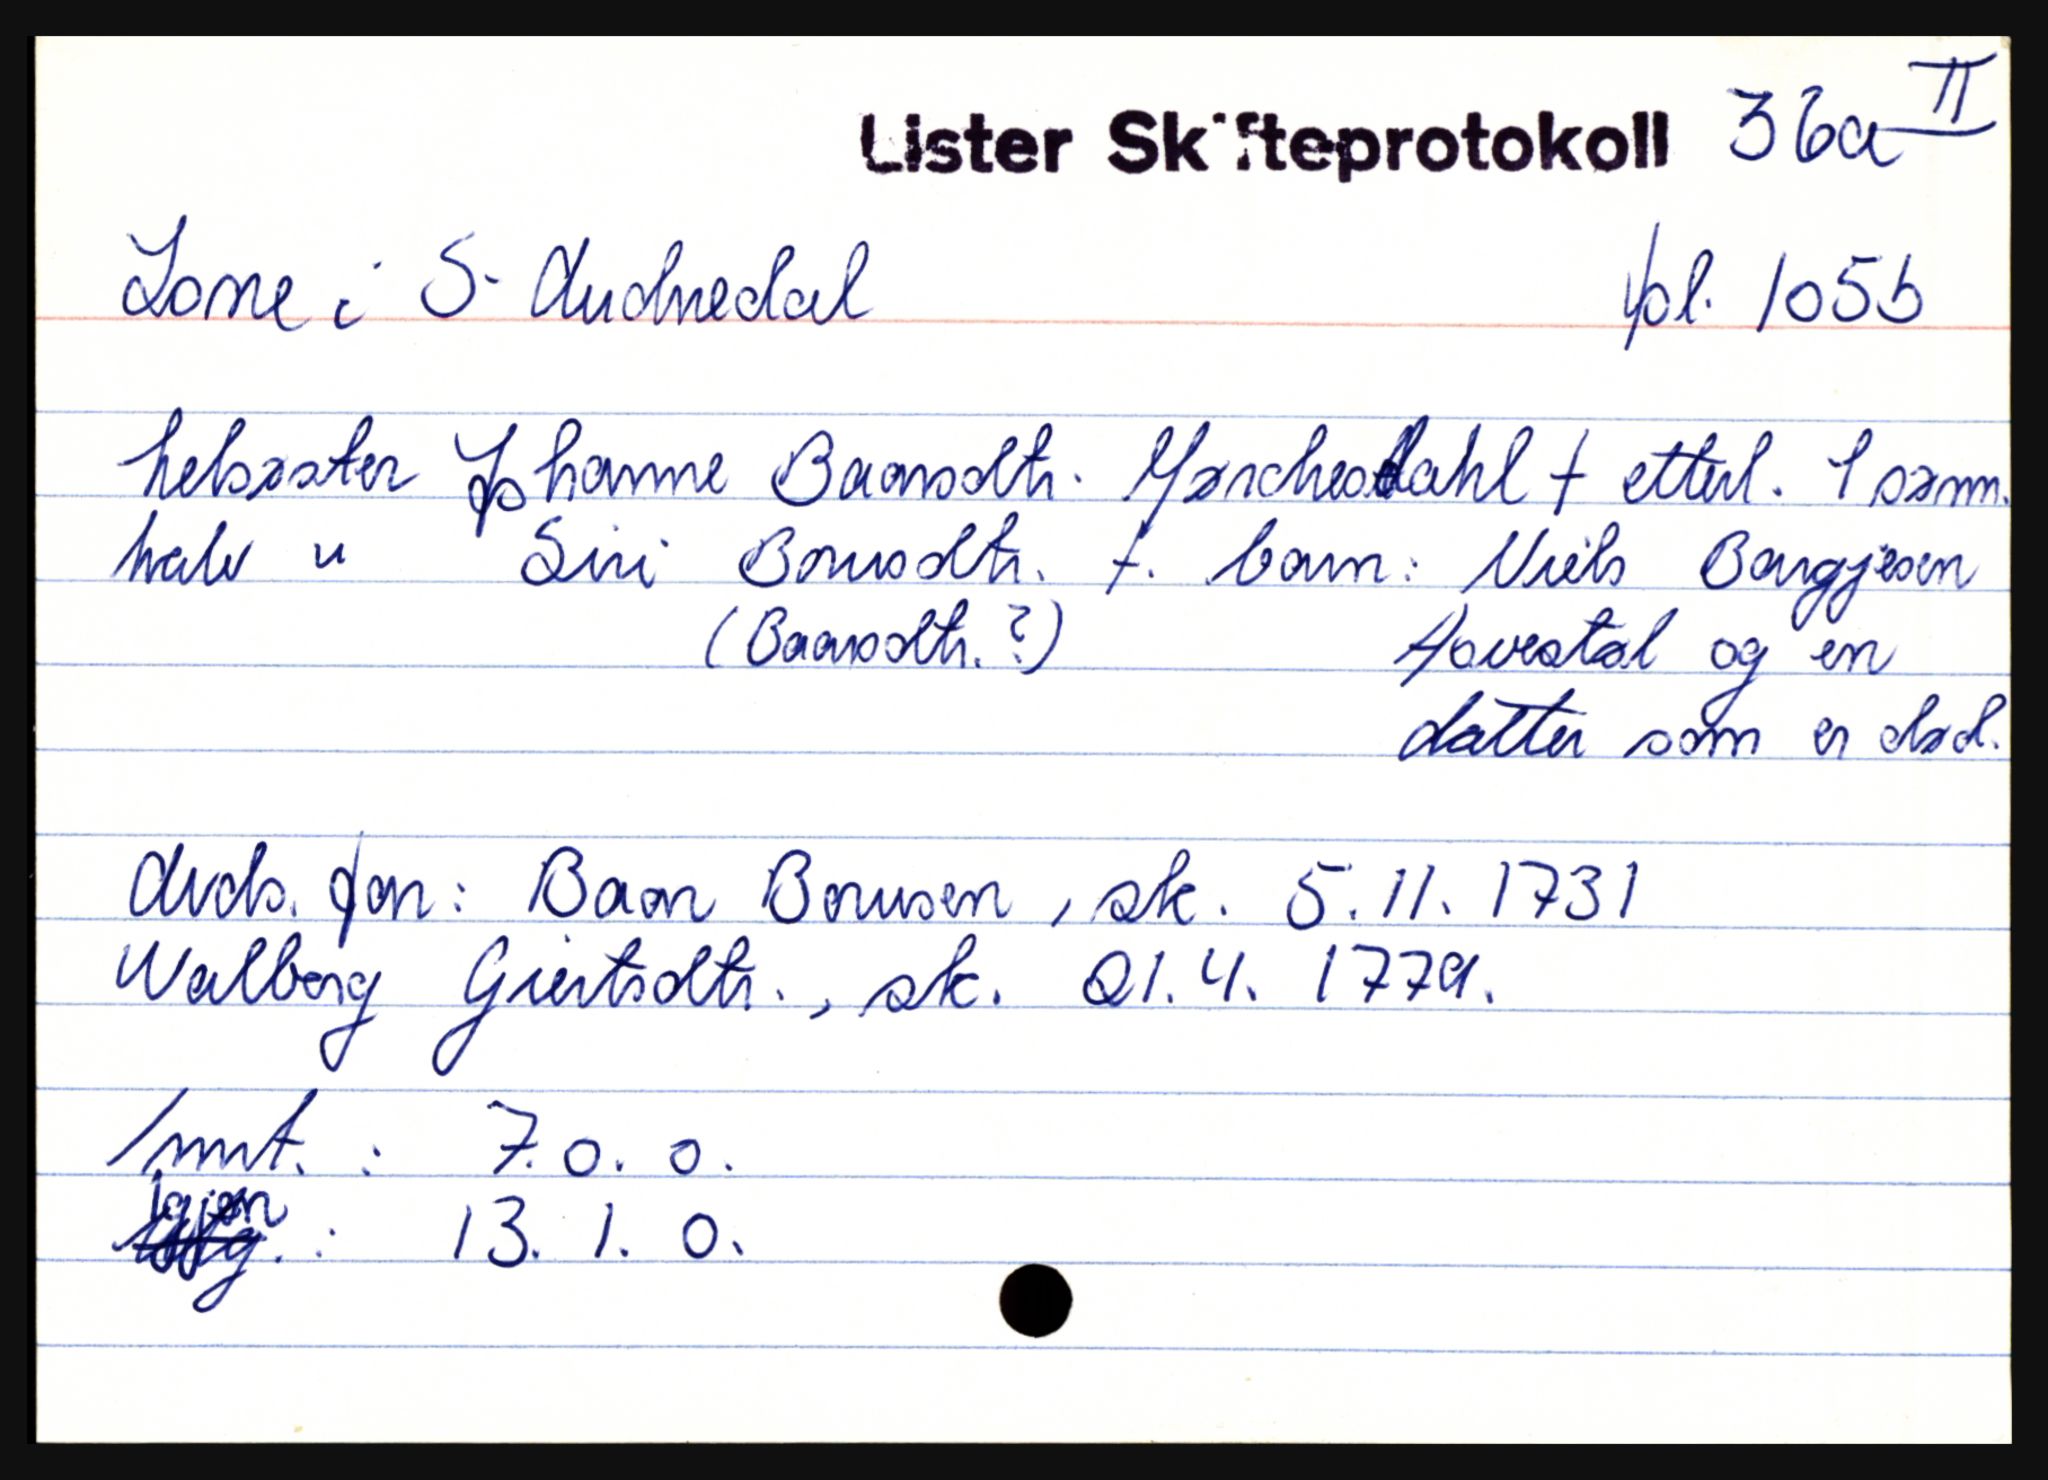 Lister Skifteprotokoll 36a II
Lone i S. Audnedal fol. 105b
helsøster Johanne Baarsdtr. Mørchesdahl + etterl. 1 sønn.
halv " Siri Borusdtr. +. barn: Niels Baygjesen
(Baarsdtr.?) Hovestøl og en
datter som er død.
Avds. far: Baar Borusen, sk. 5.11.1731
Walborg Giertsdtr., sk. 21.4.1779.
Innt. : 7. 0. 0.
Igjen : 13. 1. 0.